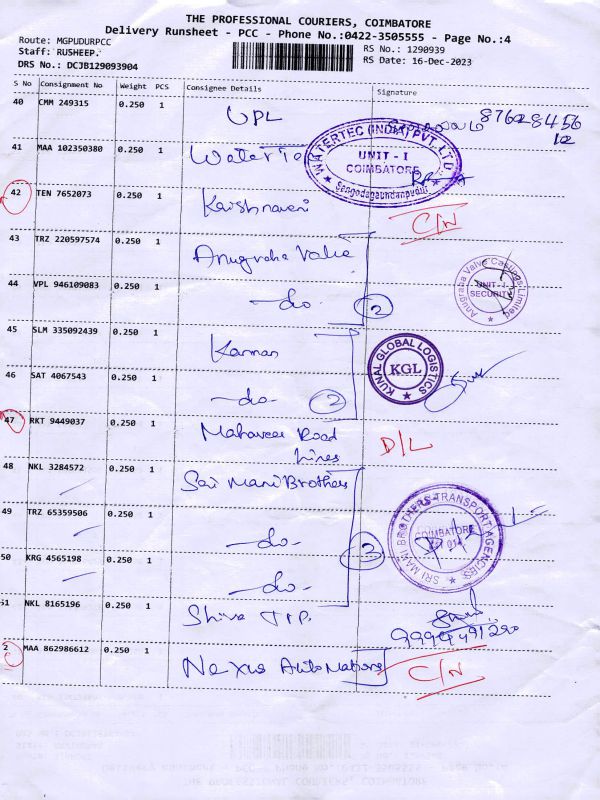 THE PROFESSIONAL COURIERS, COIMBATORE
Delivery Runsheet - PCC - Phone No.:0422-3505555 - Page No.:4
Route: MGPUDURPCC
RS No.: 1290939
Staff: RUSHEEP.
RS Date: 16-Dec-2023
DRS No.: DCJB129093904
S No Consignment No Weight PCS Consignee Details Signature
40 CMM 249315 0.250 1 UPL 87628456
12
41 MAA 102350380 0.250 1 WaterTe
WATERTEC (INDIA) PVT. LTD. UNIT - I COIMBATORE Sengodagaundanpudur
42 TEN 7652073 0.250 1 Krishnaveni C/N
43 TRZ 220597574 0.250 1 Anugraha Valve
44 VPL 946109083 0.250 1 -do- 2
Anugraha Valve Castings Limited UNIT-I SECURITY
45 SLM 335092439 0.250 1 Kannan
KUNAL GLOBAL LOGISTICS KGL
46 SAT 4067543 0.250 1 -do- 2
47 RKT 9449037 0.250 1 Mahaveer Road D/L
Lines
48 NKL 3284572 0.250 1 Sai Mani Brothers
49 TRZ 65359506 0.250 1 -do- 3
SRI MANI BROTHERS TRANSPORT AGENCIES COIMBATORE
50 KRG 4565198 0.250 1 -do-
51 NKL 8165196 0.250 1 Shiva TTP.
2 MAA 862986612 0.250 1 Nexus Automations C/N